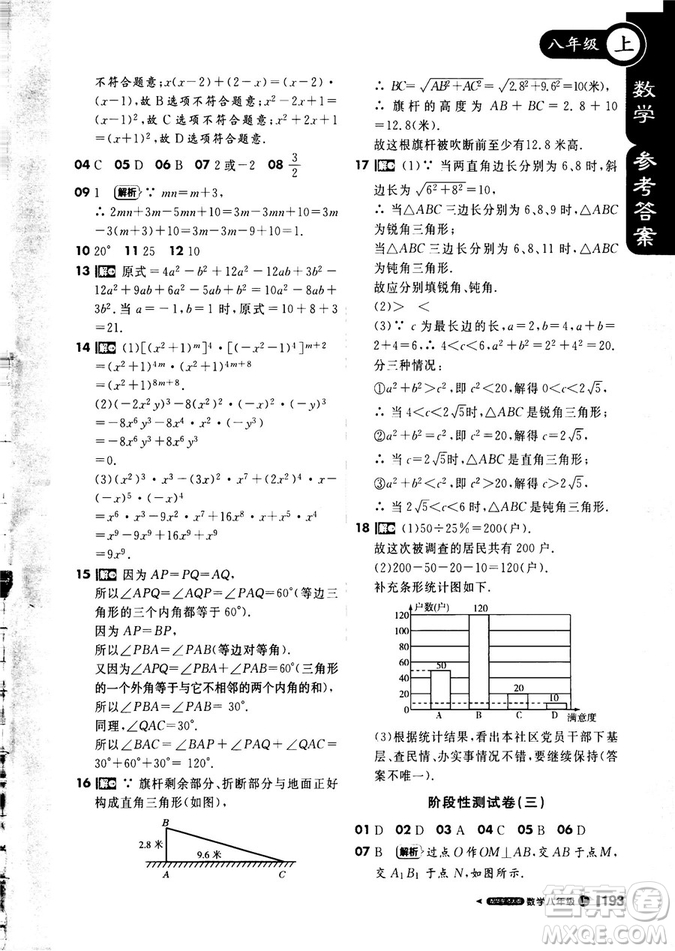 八年级 上
数学 参考答案
不符合题意；x(x－2)＋(2－x)＝(x－2)·
(x－1)，故 B 选项不符合题意；x²－2x＋1＝
(x－1)²，故 C 选项不符合题意；x²＋2x＋1＝
(x＋1)²，故 D 选项符合题意.
04 C 05 D 06 B 07 2 或－2 08 3/2
09 1 解析 ∵ mn＝m＋3，
∴ 2mn＋3m－5mn＋10＝3m－3mn＋10＝
3m－3(m＋3)＋10＝3m－3m－9＋10＝1.
10 20° 11 25 12 10
13 解 原式＝4a²－b²＋12a²－12ab＋3b²－
12a²＝4a²－b²＋12a²－12ab＋3b²－12a²＝4a²－12ab＋
3b². 当 a＝1，b＝1 时，原式＝
＝21.
14 解 (1)[(x²＋1)ᵐ]⁴·[(x²＋1)²]ᵐ⁺²
＝(x²＋1)⁴ᵐ·(x²＋1)⁴ᵐ⁺⁸
＝(x²＋1)⁸ᵐ⁺⁸.
(2)(－2x²y)³＋8(x²)²·(－x²)·(－y³)
＝－8x⁶y³＋8x⁶y³
＝0.
(3)(x²)³·x³－(3x)³＋(－x)²·
(－x)⁵·(－x)²
＝x⁶·x³＋x²·x⁵·x²
＝x⁹＋9x⁹－x⁹
＝9x⁹.
15 解 因为 AP＝PQ＝AQ，
所以∠APQ＝∠AQP＝∠PAQ＝60°(三角
形的三个内角都等于 60°).
因为 AP＝BP，
所以∠PBA＝∠PAB(等边对等角).
又因为∠APQ＝∠PBA＋∠PAB(三角形的
一个外角等于与它不相邻的两个内角的和)，
所以∠PBA＝∠PAB＝30°.
同理，∠QAC＝30°.
所以∠BAC＝∠BAP＋∠PAQ＋∠QAC＝
30°＋60°＋30°＝120°.
16 解 ∵ 旗杆剩余部分、折断部分与地面正好
构成直角三角形(如图)，
B
2.8 米
9.6 米
A C
∴ BC＝√(AB²＋AC²)＝√(2.8²＋9.6²)＝10(米).
∴ 旗杆的高度为 AB＋BC＝2.8＋10＝
12.8(米).
故这根旗杆被吹断前至少有 12.8 米.
17 解 (1)∵ 当两直角边长分别为 6、8 时，斜
边长为 √(6²＋8²)＝10，
∴ 当△ABC 三边长分别为 6、8、9 时，△ABC
为锐角三角形；
当△ABC 三边长分别为 6、8、11 时，△ABC
为钝角三角形.
故应分别填锐角、钝角.
(2)＞ ＜
(3)∵ c 为最长边的长，a＝2，b＝4，a＋b＝
2＋4＝6，∴ 4＜c＜6.
分三种情况：
①a²＋b²＞c²，即 c²＜20，0＜c＜2√5，
∴ 当 4＜c＜2√5时，△ABC 是锐角三角形；
②a²＋b²＝c²，即 c²＝20，c＝2√5，
∴ 当 c＝2√5时，△ABC 是直角三角形；
③a²＋b²＜c²，即 c²＞20，c＞2√5，
∴ 当 2√5＜c＜6 时，△ABC 是钝角三角形.
18 解 (1)50÷25%＝200(户).
故这次被调查的居民共有 200 户.
(2)200－50－20－10＝120(户).
补充条形统计图如下.
户数(户)
120
100
80
60
40
20
0
50 120 20 10
A B C D 满意度
(3)根据统计结果，看出本社区党员干部下基
层、查民情、办实事情况不错，要继续保持(答
案不唯一).
阶段性测试卷(三)
01 D 02 D 03 A 04 C 05 B 06 D
07 B 解析 过点 O 作 OM⊥AB，交 AB 于点 M，
交 A₁B₁ 于点 N，如图所示.
数学八年级 上 193
答案圈